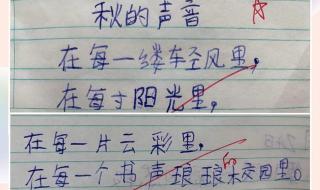 秋的声音
在每一缕轻风里，
在每寸阳光里，
在每一片云彩里，
在每一个书声琅琅的校园里。